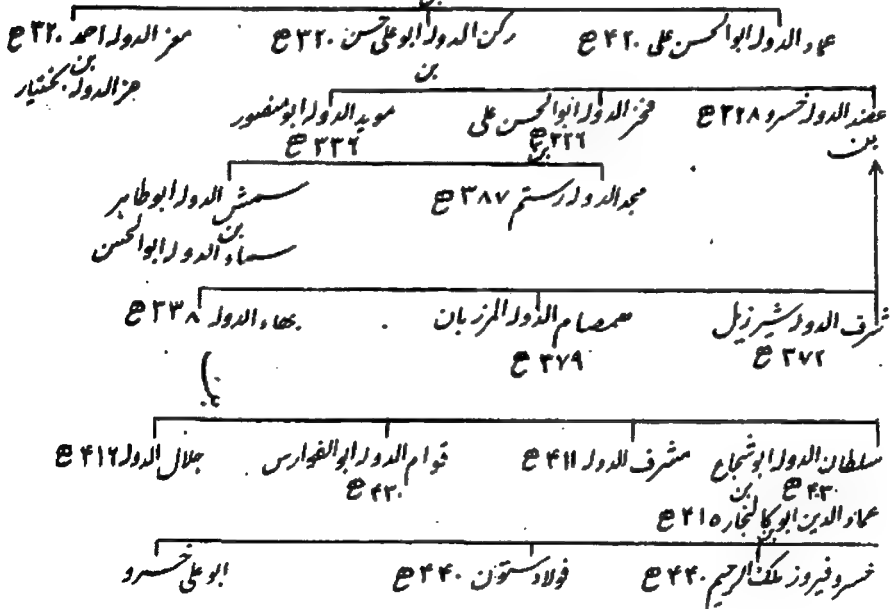 بن
عماد الدولہ ابوالحسن علی ۴۲۰ ھ رکن الدولہ ابوعلی حسن ۳۲۰ ھ معز الدولہ احمد ۳۲۰ ھ
بن بن
عز الدولہ بختیار
عضد الدولہ خسرو ۳۲۸ ھ فخر الدولہ ابوالحسن علی موید الدولہ ابومنصور
بن ۳۲۶ ھ ۳۳۶ ھ
بن
مجد الدولہ رستم ۳۸۷ ھ سمش الدولہ ابوطاہر
بن
سماء الدولہ ابوالحسن
شرف الدولہ شیرزیل صمصام الدولہ المرزبان بھاء الدولہ ۳۳۸ ھ
۳۷۲ ھ ۳۷۹ ھ
بن
سلطان الدولہ ابوشجاع مشرف الدولہ ۴۱۱ ھ قوام الدولہ ابوالفوارس جلال الدولہ ۴۱۶ ھ
۴۰۳۰ ھ بن ۴۳۰ ھ
عماد الدین ابوکالنجار ۴۱۵ ھ
بن
خسرو فیروز ملک الرحیم ۴۴۰ ھ فولادستون ۴۴۰ ھ ابوعلی خسرو